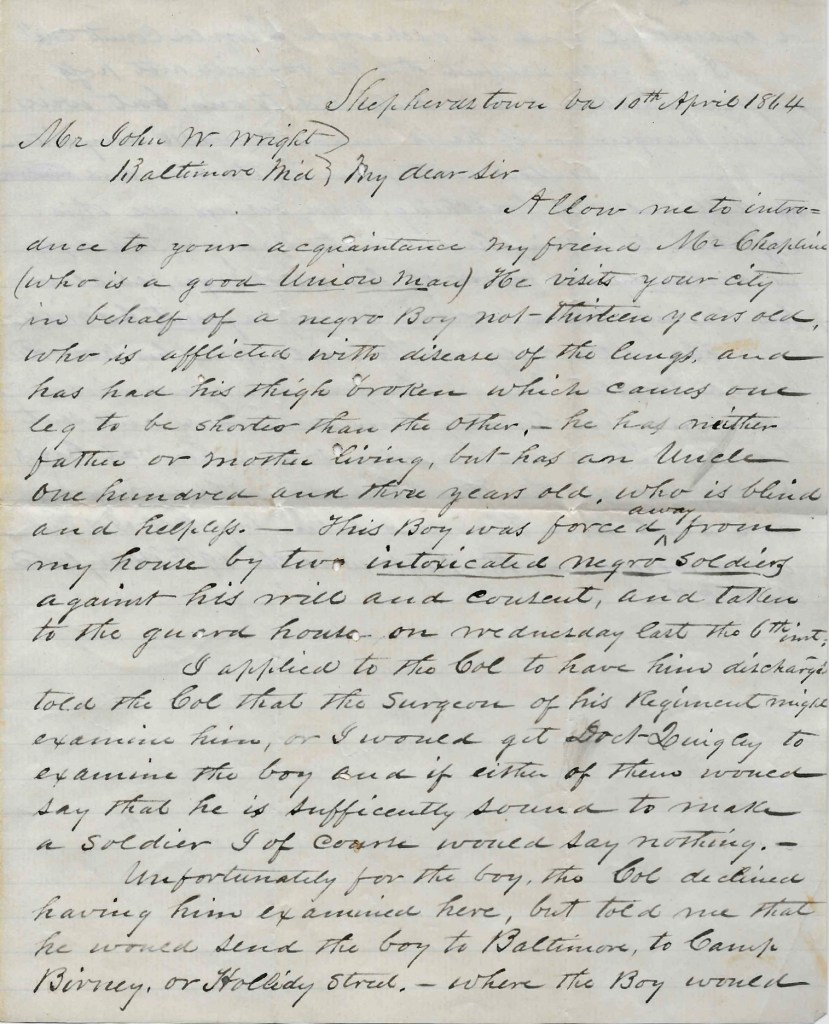 Shepherdstown Va 10th April 1864
Mr John W. Wright
Baltimore Md } My dear Sir
Allow me to intro=
duce to your acquaintance my friend Mr Chapline
(who is a good Union man) He visits your city
in behalf of a negro Boy not thirteen years old,
who is afflicted with disease of the lungs, and
has had his thigh broken which causes one
leg to be shorter than the other, – he has neither
father or mother living, but has an Uncle
one hundred and three years old, who is blind
and helpless. — This Boy was forced away from
my house by two intoxicated negro soldiers
against his will and consent, and taken
to the guard house on wednesday last the 6th inst,
I applied to the Col to have him discharg'd
told the Col that the Surgeon of his Regiment might
examine him, or I would get Doct Quigley to
examine the boy and if either of them would
say that he is sufficently sound to make
a soldier I of course would say nothing. –
Unfortunately for the boy, the Col declined
having him examined here, but told me that
he would send the boy to Baltimore, to Camp
Birney, or Hollidy Street. – where the Boy would